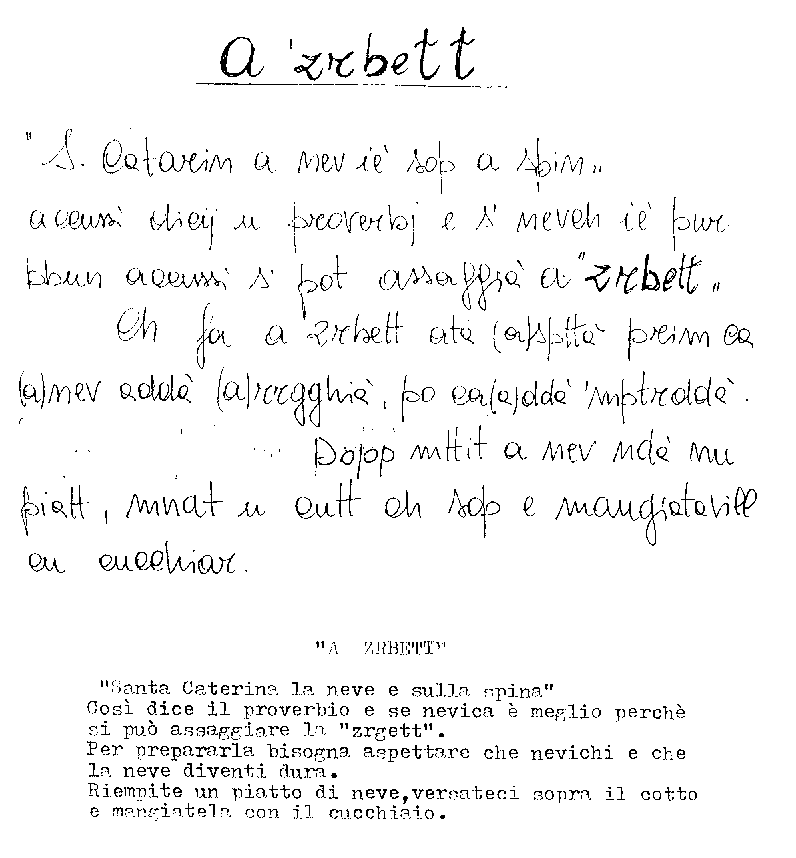 A 'zrbett
"S. Catarin a nev iè sop a spin"
acussì dicij u proverbj e s' neveh iè pur
bbun acussì s' pot assaggià a "zrbett"
Ch fa a zrbett atà (a)spttà preim ca
(a)nev addà (a)rregghià, po ca(a)ddà 'mptrddà.
Dopp mttit a nev ndà nu
piatt, mnat u cutt ch sop e mangiatavill
cu cucchiar.
"A ZRBETT"
"Santa Caterina la neve e sulla spina"
Così dice il proverbio e se nevica è meglio perchè
si può assaggiare la "zrgett".
Per prepararla bisogna aspettare che nevichi e che
la neve diventi dura.
Riempite un piatto di neve,versateci sopra il cotto
e mangiatela con il cucchiaio.